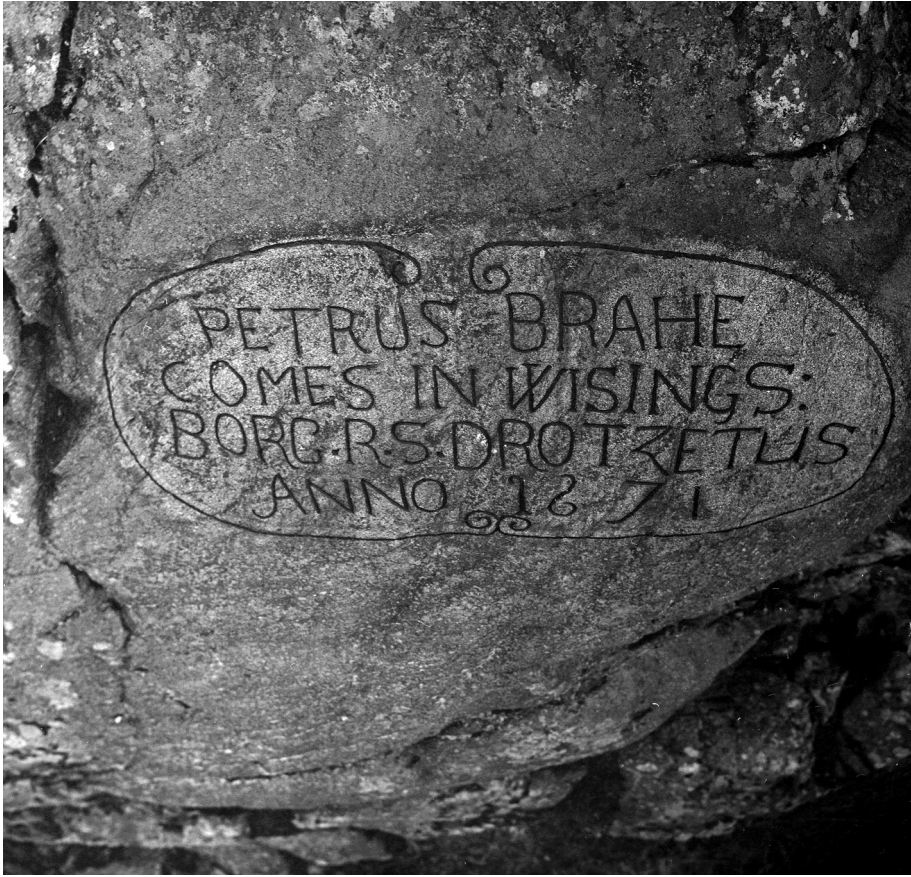 PETRUS BRAHE
COMES IN WISINGS:
BORG·R·S·DROTZETUS
ANNO 1671